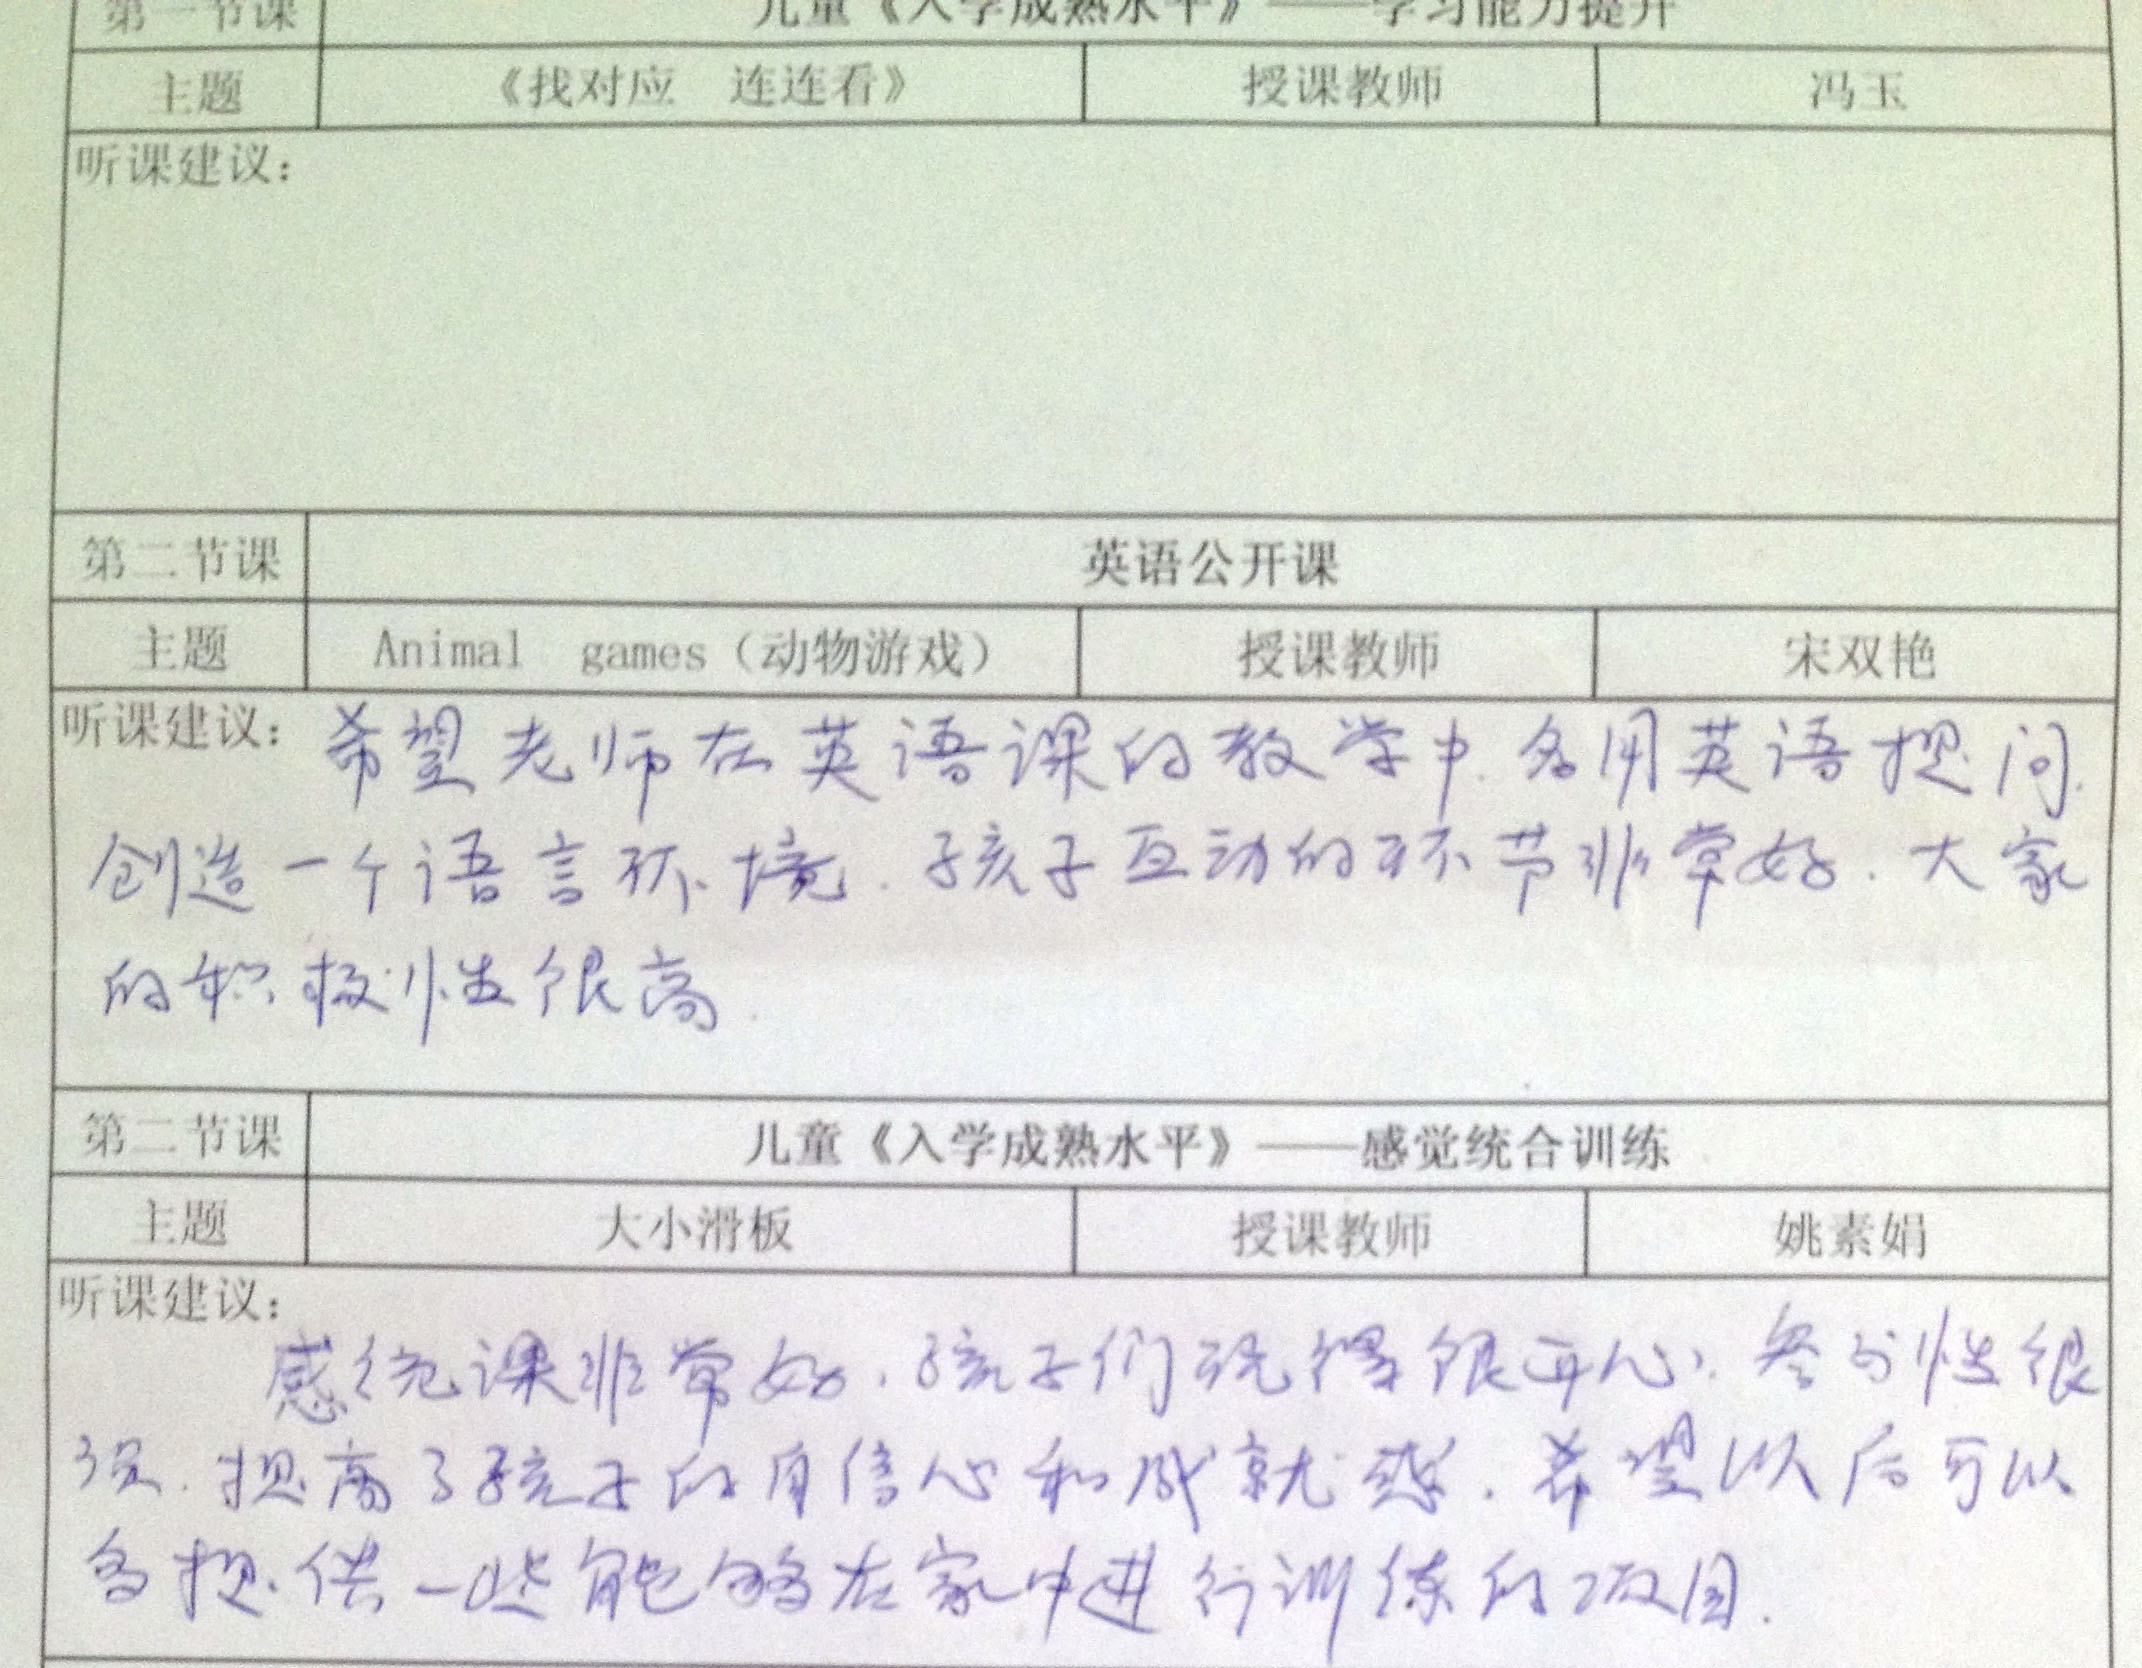 第一节课 儿童《入学成熟水平》——学习能力提升
主题 《找对应 连连看》 授课教师 冯玉
听课建议：
第二节课 英语公开课
主题 Animal games（动物游戏） 授课教师 宋双艳
听课建议：希望老师在英语课的教学中.多用英语提问.
创造一个语言环境.孩子互动的环节非常好.大家
的积极性很高.
第二节课 儿童《入学成熟水平》——感觉统合训练
主题 大小滑板 授课教师 姚素娟
听课建议：
感统课非常好.孩子们玩得很开心.参与性很
强.提高了孩子的自信心和成就感.希望以后可以
多提供一些能够在家中进行训练的项目.